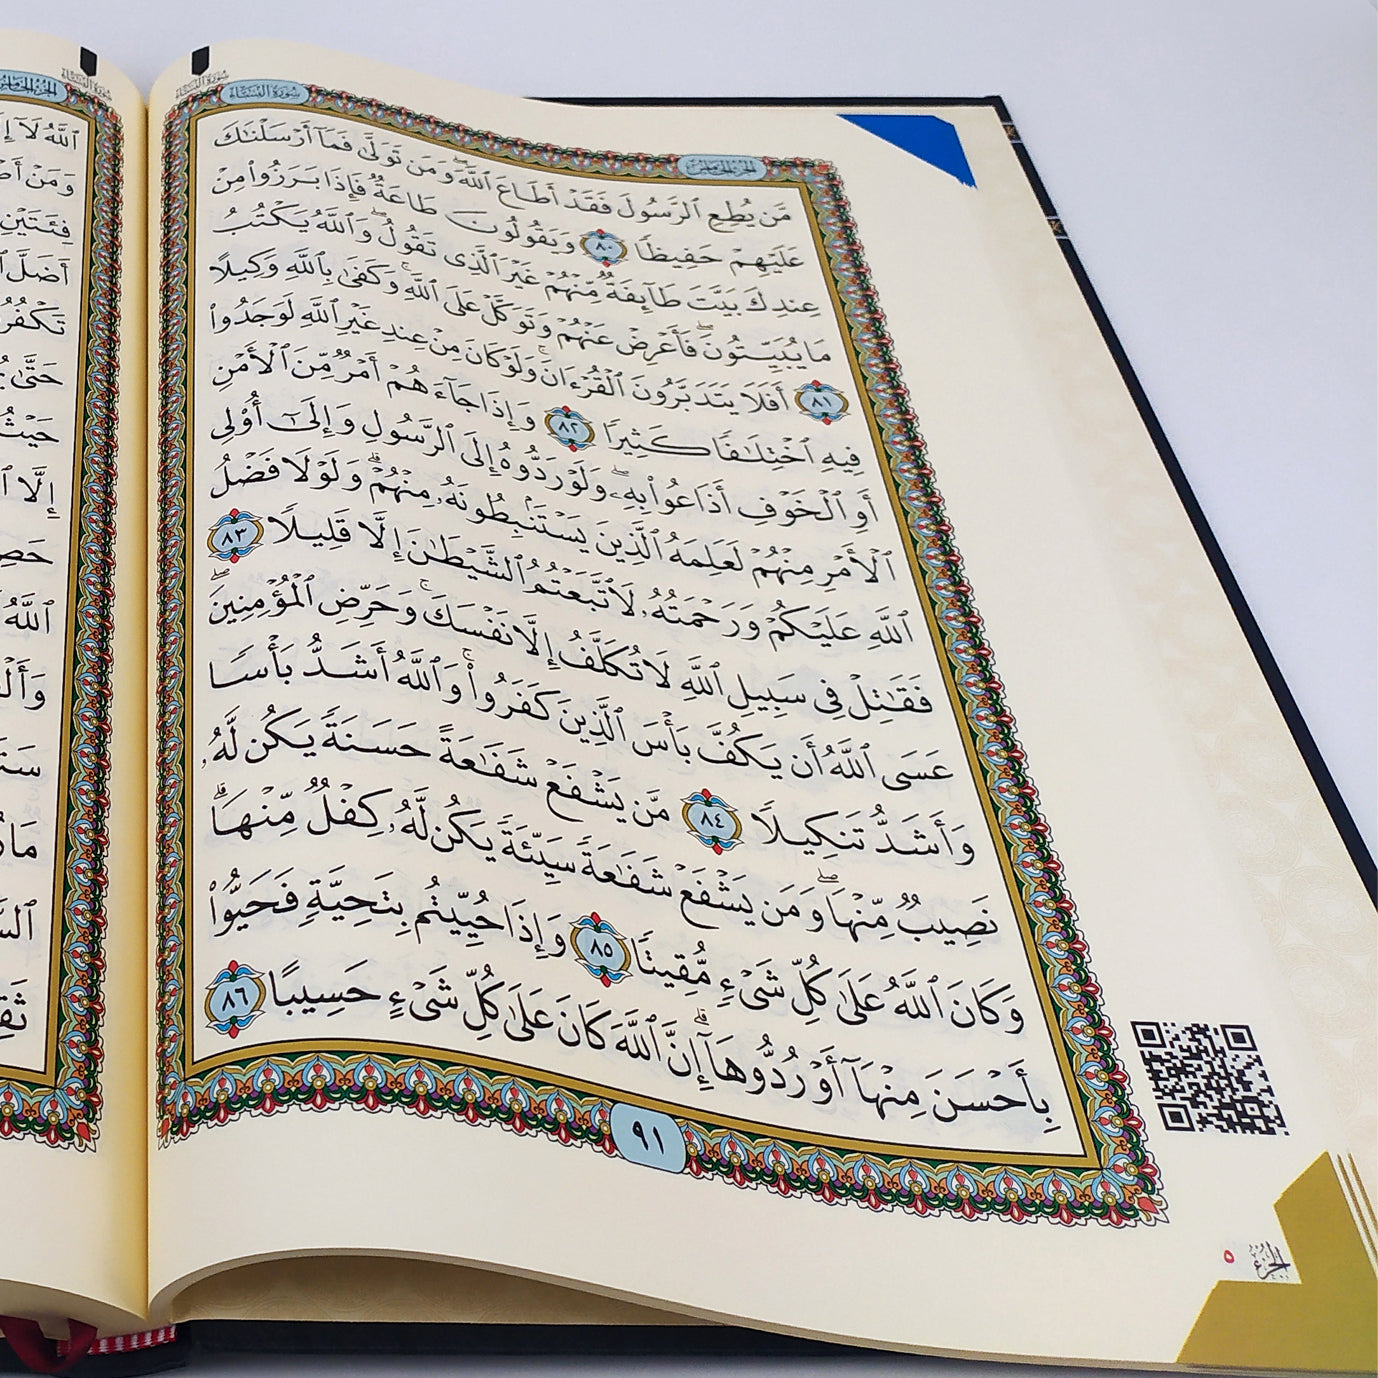 سُورَةُ النِّسَاء
سُورَةُ النِّسَاءِ
الجُزْءُ الخَامِسُ
مَّن يُطِعِ ٱلرَّسُولَ فَقَدْ أَطَاعَ ٱللَّهَ ۖ وَمَن تَوَلَّىٰ فَمَآ أَرْسَلْنَٰكَ
عَلَيْهِمْ حَفِيظًا ٨٠ وَيَقُولُونَ طَاعَةٌ فَإِذَا بَرَزُوا۟ مِنْ
عِندِكَ بَيَّتَ طَآئِفَةٌ مِّنْهُمْ غَيْرَ ٱلَّذِى تَقُولُ ۖ وَٱللَّهُ يَكْتُبُ
مَا يُبَيِّتُونَ ۖ فَأَعْرِضْ عَنْهُمْ وَتَوَكَّلْ عَلَى ٱللَّهِ ۚ وَكَفَىٰ بِٱللَّهِ وَكِيلًا
٨١ أَفَلَا يَتَدَبَّرُونَ ٱلْقُرْءَانَ ۚ وَلَوْ كَانَ مِنْ عِندِ غَيْرِ ٱللَّهِ لَوَجَدُوا۟
فِيهِ ٱخْتِلَٰفًا كَثِيرًا ٨٢ وَإِذَا جَآءَهُمْ أَمْرٌ مِّنَ ٱلْأَمْنِ
أَوِ ٱلْخَوْفِ أَذَاعُوا۟ بِهِۦ ۖ وَلَوْ رَدُّوهُ إِلَى ٱلرَّسُولِ وَإِلَىٰٓ أُو۟لِى
ٱلْأَمْرِ مِنْهُمْ لَعَلِمَهُ ٱلَّذِينَ يَسْتَنۢبِطُونَهُۥ مِنْهُمْ ۗ وَلَوْلَا فَضْلُ
ٱللَّهِ عَلَيْكُمْ وَرَحْمَتُهُۥ لَٱتَّبَعْتُمُ ٱلشَّيْطَٰنَ إِلَّا قَلِيلًا ٨٣
فَقَٰتِلْ فِى سَبِيلِ ٱللَّهِ لَا تُكَلَّفُ إِلَّا نَفْسَكَ ۚ وَحَرِّضِ ٱلْمُؤْمِنِينَ ۖ
عَسَى ٱللَّهُ أَن يَكُفَّ بَأْسَ ٱلَّذِينَ كَفَرُوا۟ ۚ وَٱللَّهُ أَشَدُّ بَأْسًا
وَأَشَدُّ تَنكِيلًا ٨٤ مَّن يَشْفَعْ شَفَٰعَةً حَسَنَةً يَكُن لَّهُۥ
نَصِيبٌ مِّنْهَا ۖ وَمَن يَشْفَعْ شَفَٰعَةً سَيِّئَةً يَكُن لَّهُۥ كِفْلٌ مِّنْهَا ۗ
وَكَانَ ٱللَّهُ عَلَىٰ كُلِّ شَىْءٍ مُّقِيتًا ٨٥ وَإِذَا حُيِّيتُم بِتَحِيَّةٍ فَحَيُّوا۟
بِأَحْسَنَ مِنْهَآ أَوْ رُدُّوهَآ ۗ إِنَّ ٱللَّهَ كَانَ عَلَىٰ كُلِّ شَىْءٍ حَسِيبًا ٨٦
٩١
الجزء ٥
سُورَةُ النِّسَاء
الجُزْءُ الخَامِسُ
ٱللَّهُ لَآ
وَمَنْ
فِئَتَيْنِ
أَضَلَّ
حَتَّىٰ
حَيْثُ
إِلَّا
ٱللَّهُ